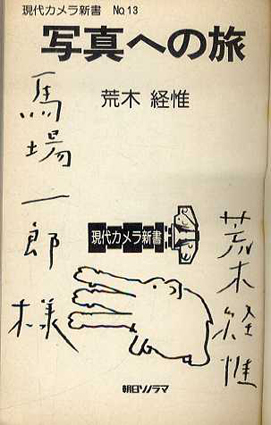 現代カメラ新書 No.13
写真への旅
荒木 経惟
馬場一郎様
現代カメラ新書
荒木経惟
朝日ソノラマ